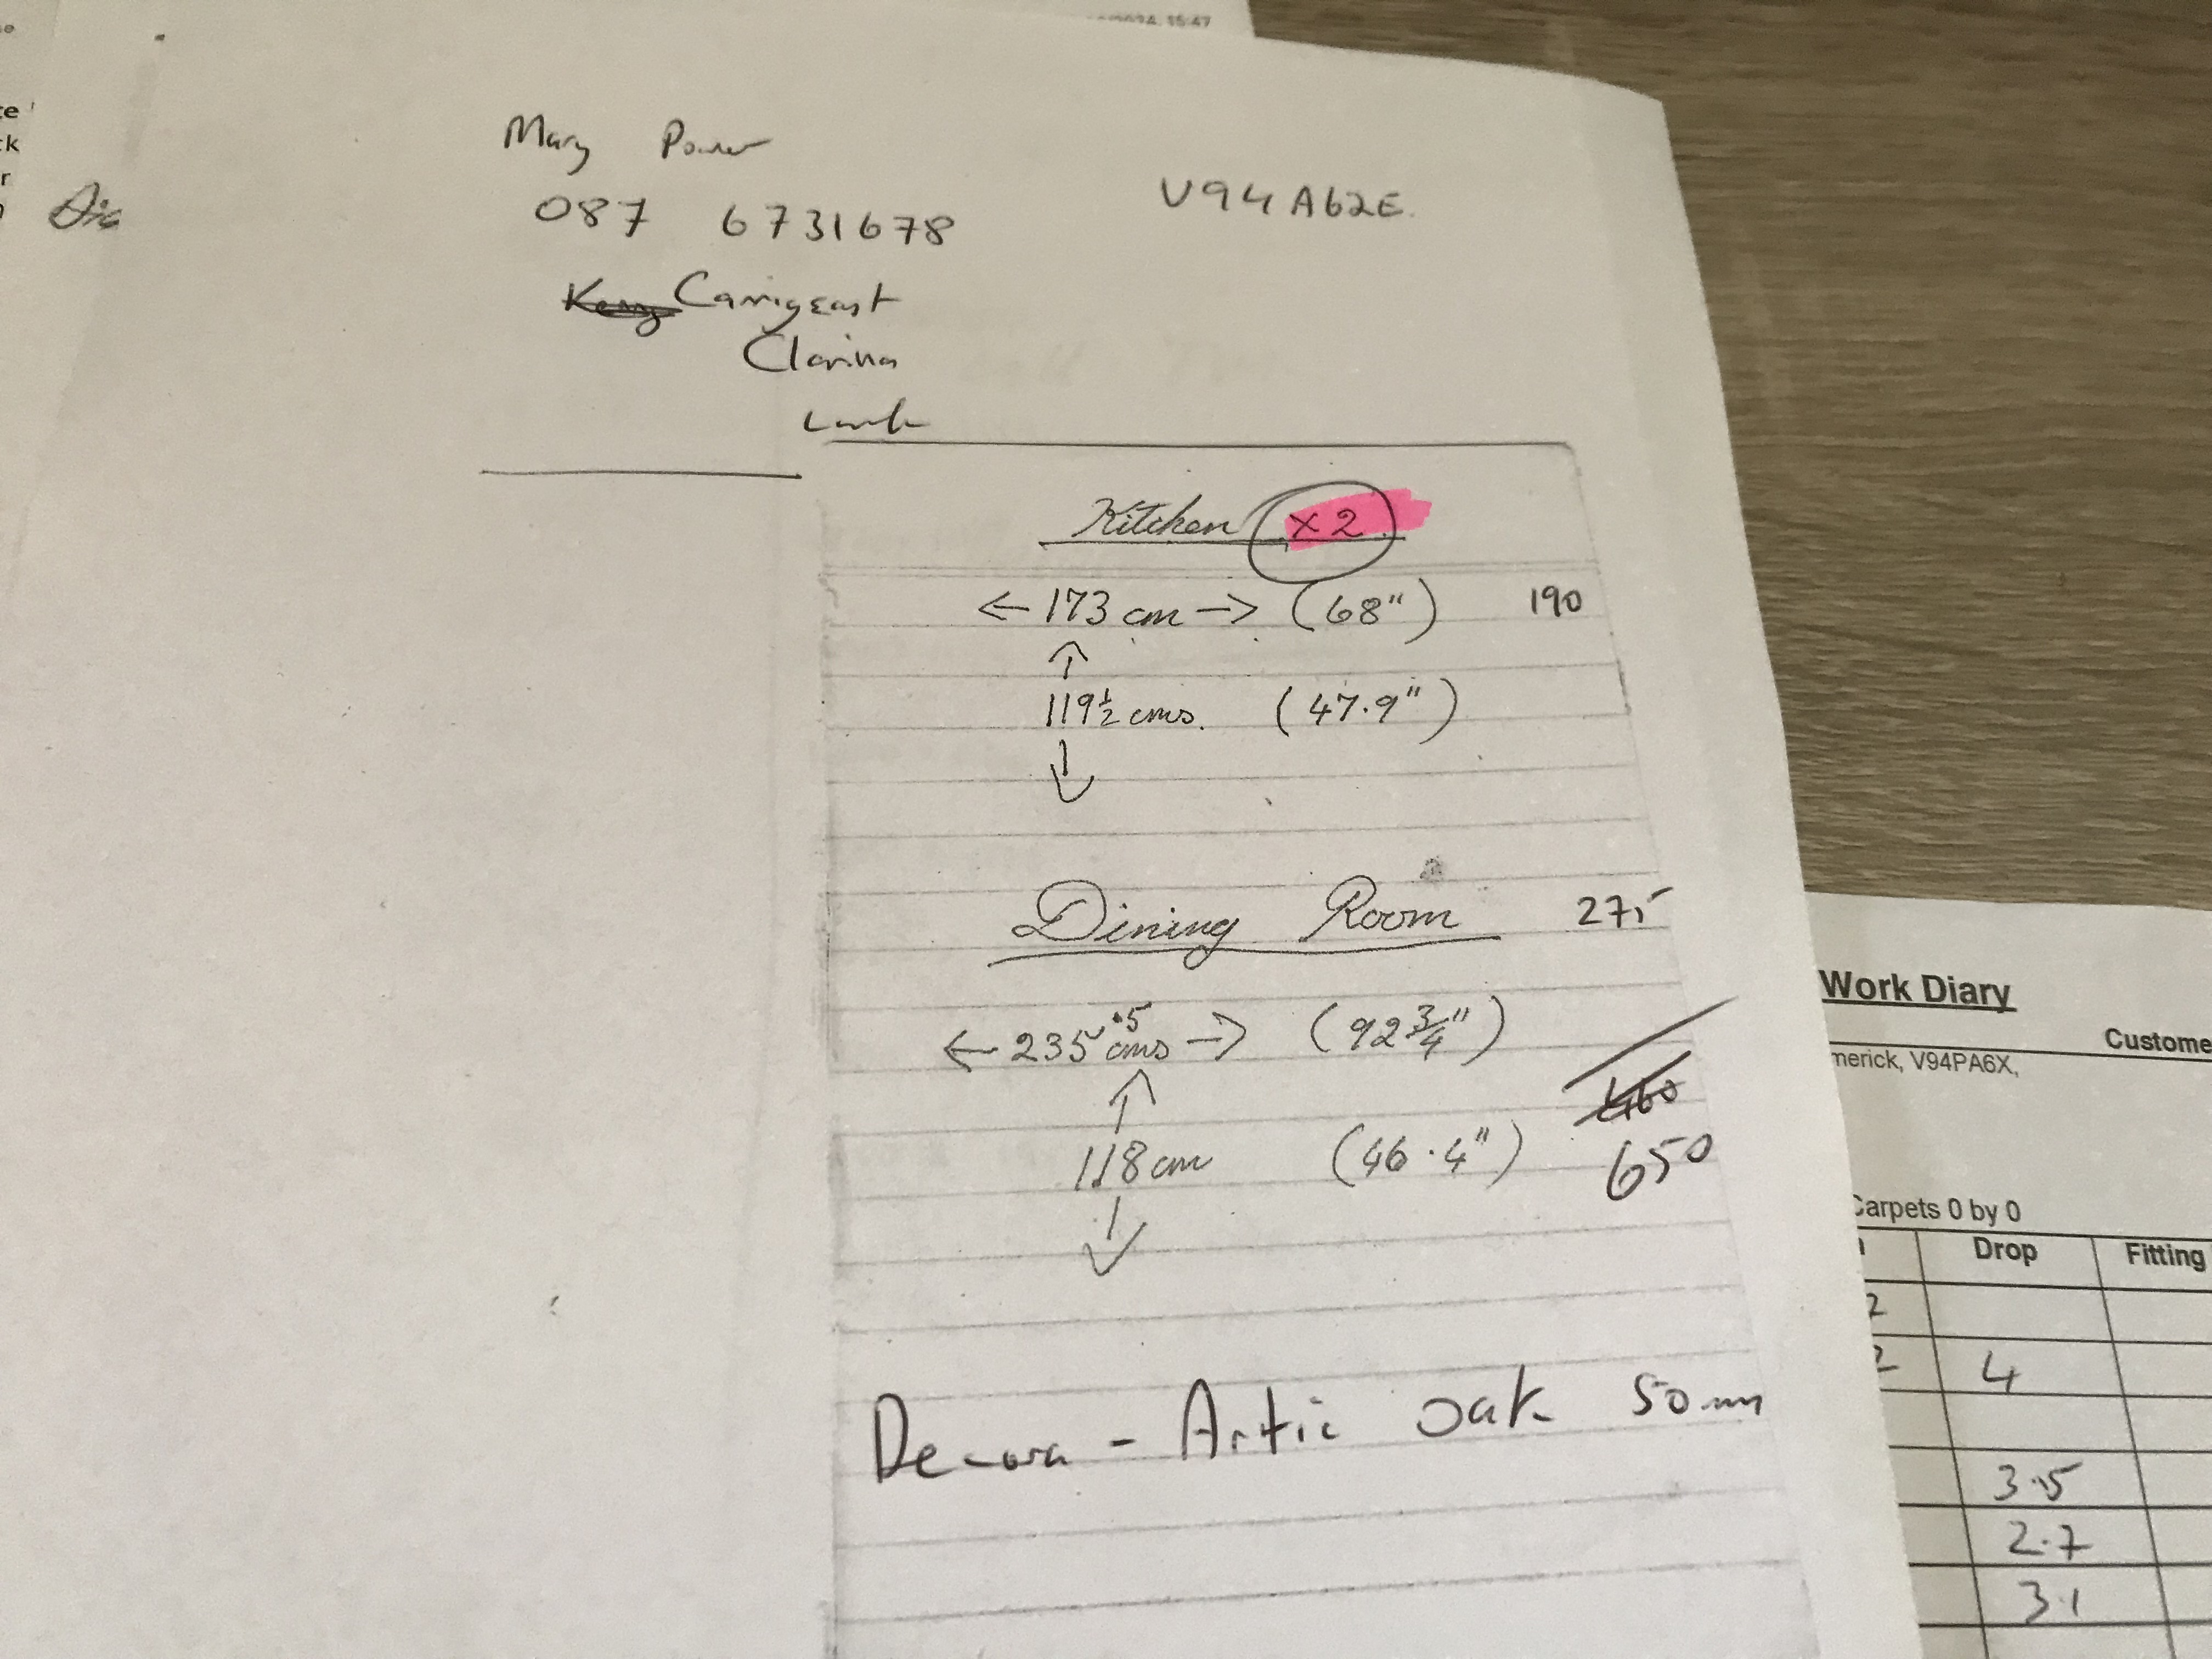 15:47
te
ck
r
Mary Power
087 6731678
V94 A62E.
Carrigeast
Clarina
Kitchen x2
← 173 cm → (68") 190
↑
119½ cms. (47.9")
↓
Dining Room 275
← 235.5 cms → (92¾")
↑
460
118 cm (46.4") 650
↓
Decora - Artic oak 50mm
Work Diary
Custome
merick, V94PA6X,
Carpets 0 by 0
Drop Fitting
2
2 4
3.5
2.7
3.1